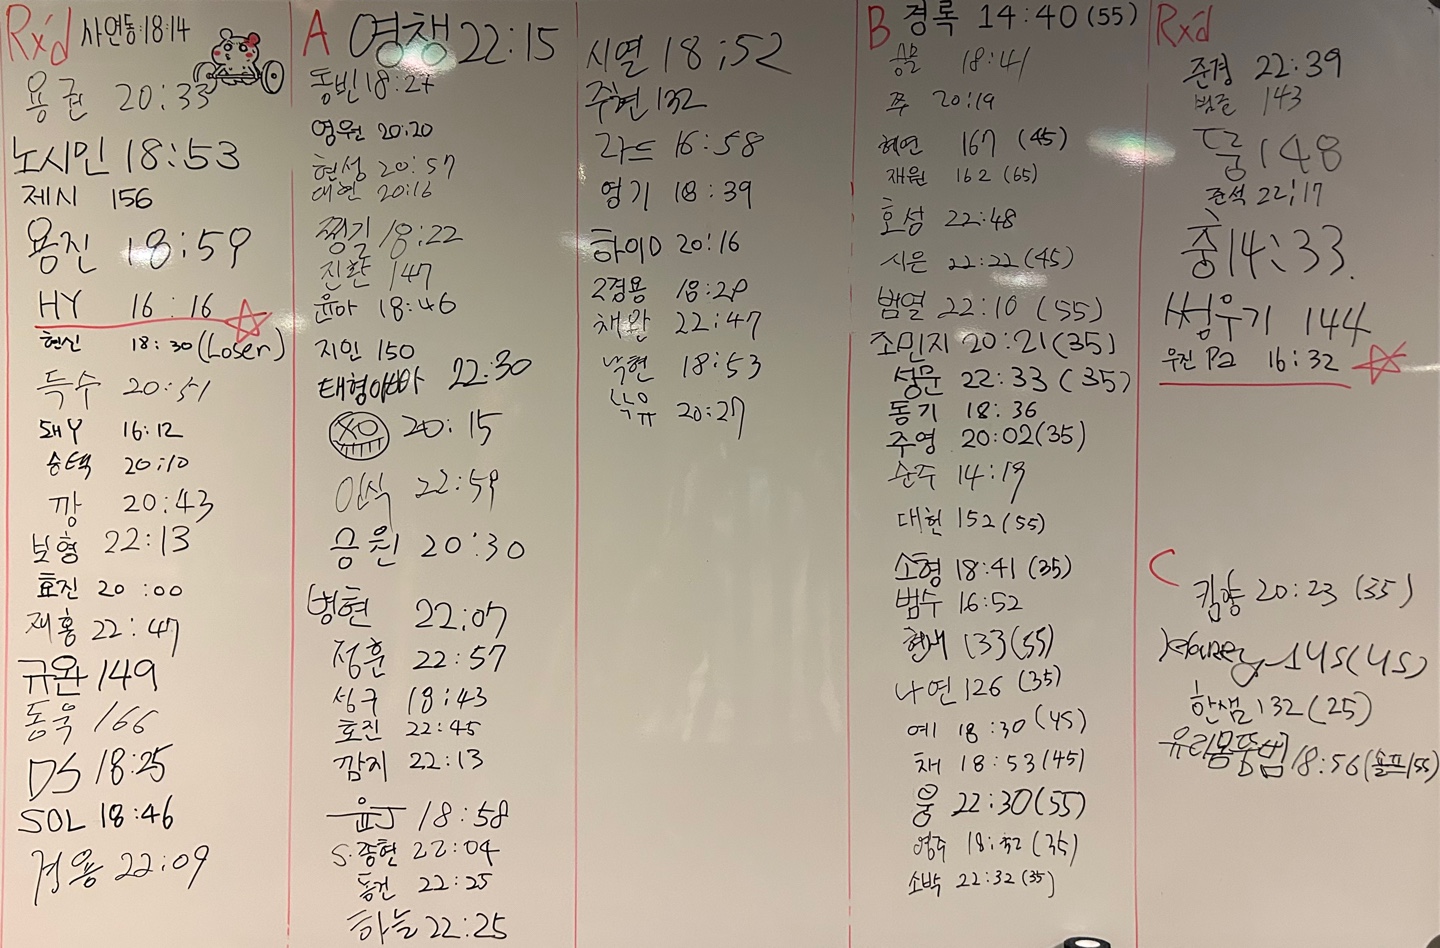 Rx'd 사연동 18:14
용권 20:33
노시민 18:53
제시 156
용진 18:59
HY 16:16
현신 18:30 (Loser)
득수 20:51
돼Y 16:12
승택 20:10
깡 20:43
보형 22:13
효진 20:00
재홍 22:47
규완 149
동욱 166
DS 18:25
SOL 18:46
겨용 22:09
A 영챙 22:15
동빈 18:27
영원 20:20
현성 20:57
대현 20:16
찡길 18:22
진환 147
윤아 18:46
지인 150
태형아빠 22:30
20:15
인식 22:59
승원 20:30
병현 22:07
정훈 22:57
성구 18:43
호진 22:45
깜지 22:13
윤J 18:58
S.종현 22:04
동건 22:25
하늘 22:25
시열 18:52
주현 132
라드 16:58
영기 18:39
하이D 20:16
2경용 18:28
채완 22:47
낙현 18:53
20:27
B 경록 14:40 (55)
18:41
쭈 20:19
혜연 167 (45)
재원 162 (65)
호섬 22:48
시은 22:22 (45)
범열 22:10 (55)
조민지 20:21 (35)
성문 22:33 (35)
동기 18:36
주영 20:02 (35)
순주 14:19
대헌 152 (55)
소형 18:41 (35)
범수 16:52
현새 133 (55)
나연 126 (35)
예 18:30 (45)
채 18:53 (45)
웅 22:30 (55)
영주 18:32 (35)
소박 22:32 (35)
Rxd
준경 22:39
범준 143
둠 148
준석 22:17
충 14:33
썽우기 144
우진 P2 16:32
C
킴양 20:23 (35)
145 (45)
한샘 132 (25)
유리몸뚱범 18:56 (솔프 155)